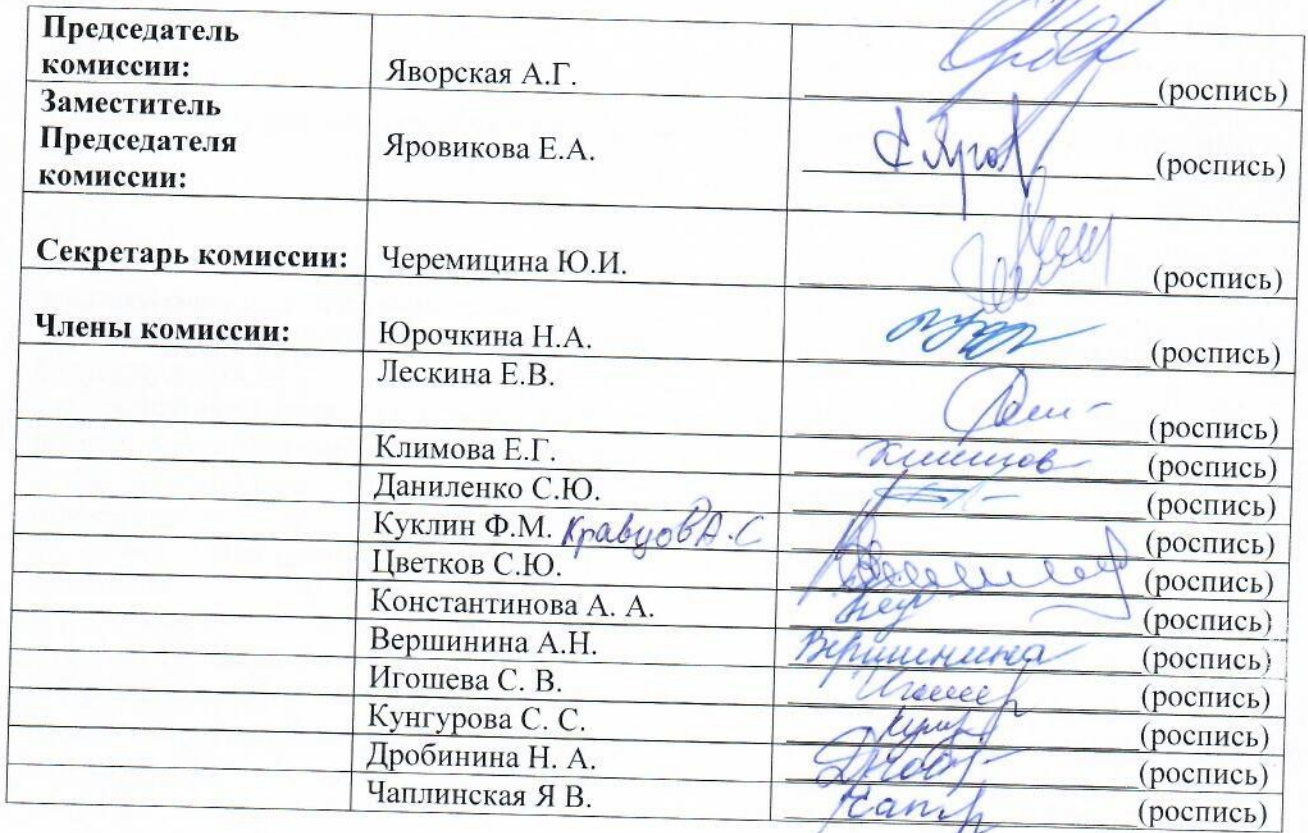 Председатель
комиссии: Яворская А.Г. (роспись)
Заместитель
Председателя
комиссии: Яровикова Е.А. (роспись)
Секретарь комиссии: Черемицина Ю.И. (роспись)
Члены комиссии: Юрочкина Н.А. (роспись)
Лескина Е.В. (роспись)
Климова Е.Г. (роспись)
Даниленко С.Ю. (роспись)
Куклин Ф.М. Кравцов А.С (роспись)
Цветков С.Ю. (роспись)
Константинова А. А. (роспись)
Вершинина А.Н. Вершинина (роспись)
Игошева С. В. (роспись)
Кунгурова С. С. (роспись)
Дробинина Н. А. (роспись)
Чаплинская Я В. (роспись)